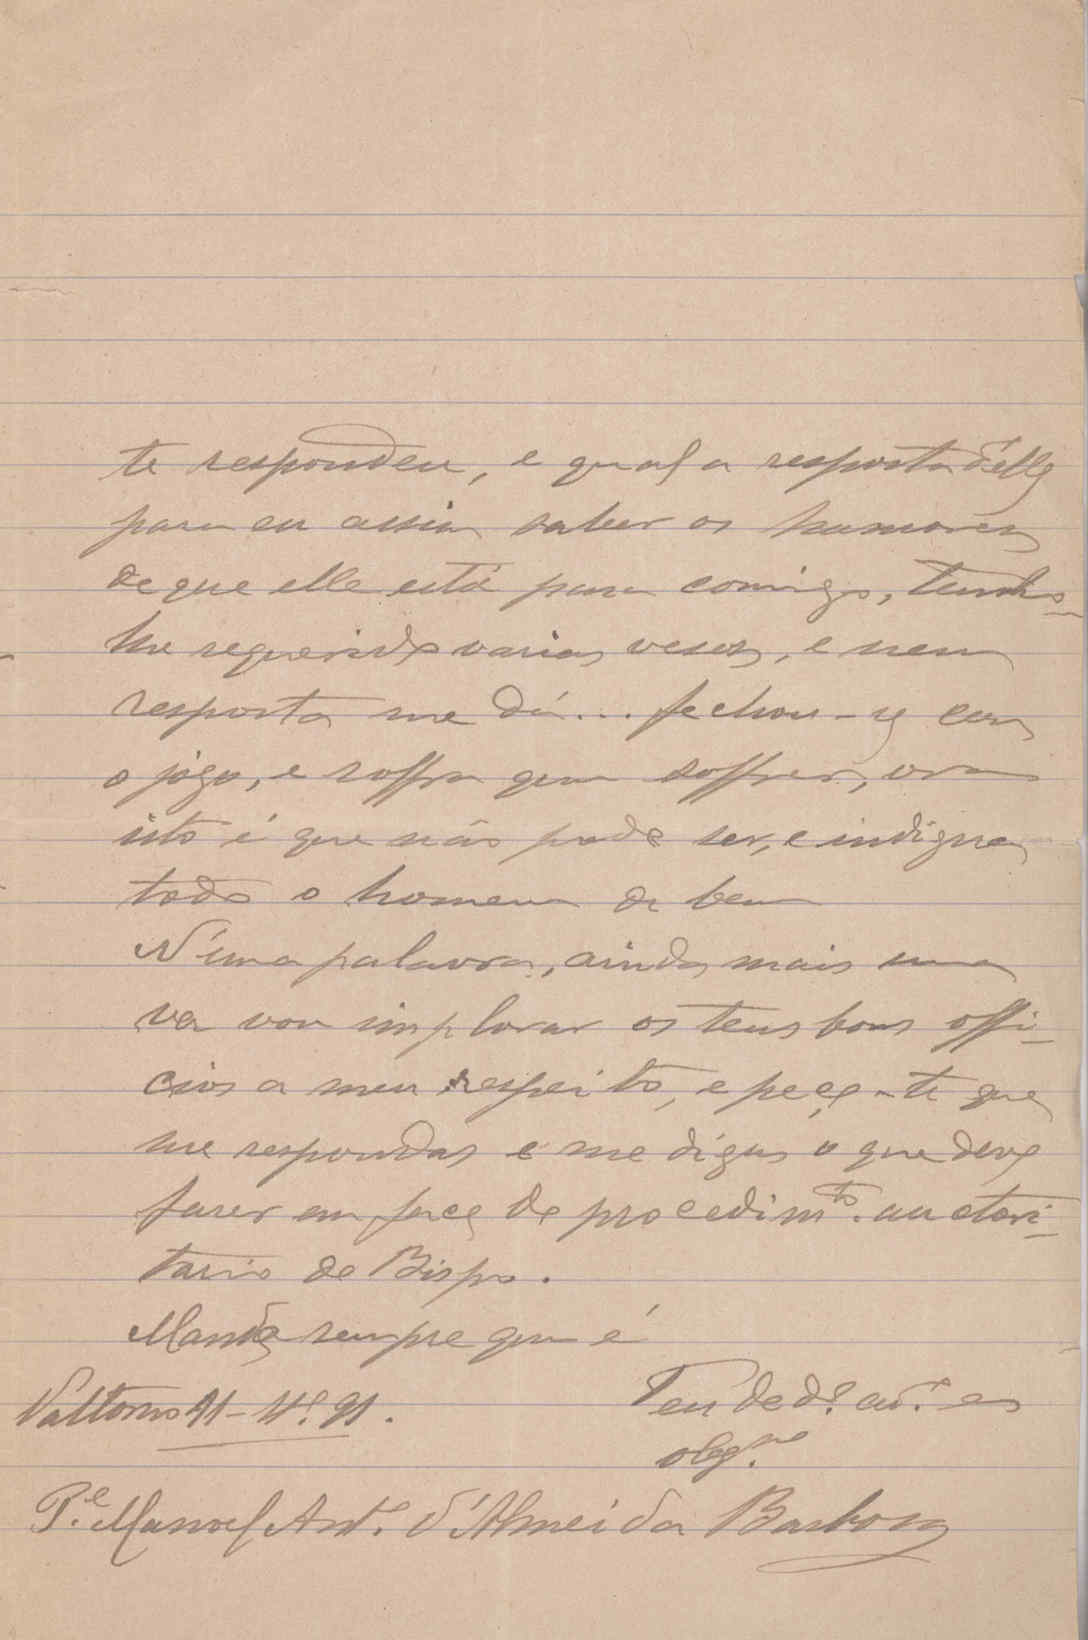 te respondeu, e qual a resposta d'elle
para eu assim saber os humores
de que elle está para comigo, tenho-
lhe requerido varias veses, e nem
resposta me dá... fechou-se com
o jogo, e soffra quem soffrer, ora
isto é que não pode ser, e indigna
todo o homem de bem
N'uma palavra, ainda mais uma
vez vou implorar os teus bons offi-
cios a meu respeito, e peço-te que
me respondas e me digas o que devo
faser em face do procedim.to auctori-
tario do Bispo.
Manda sempre quem é
Teu ded.o am.o e
obg.mo
Valtorno
P.e Manoel Ant.o d'Almeida Barbosa